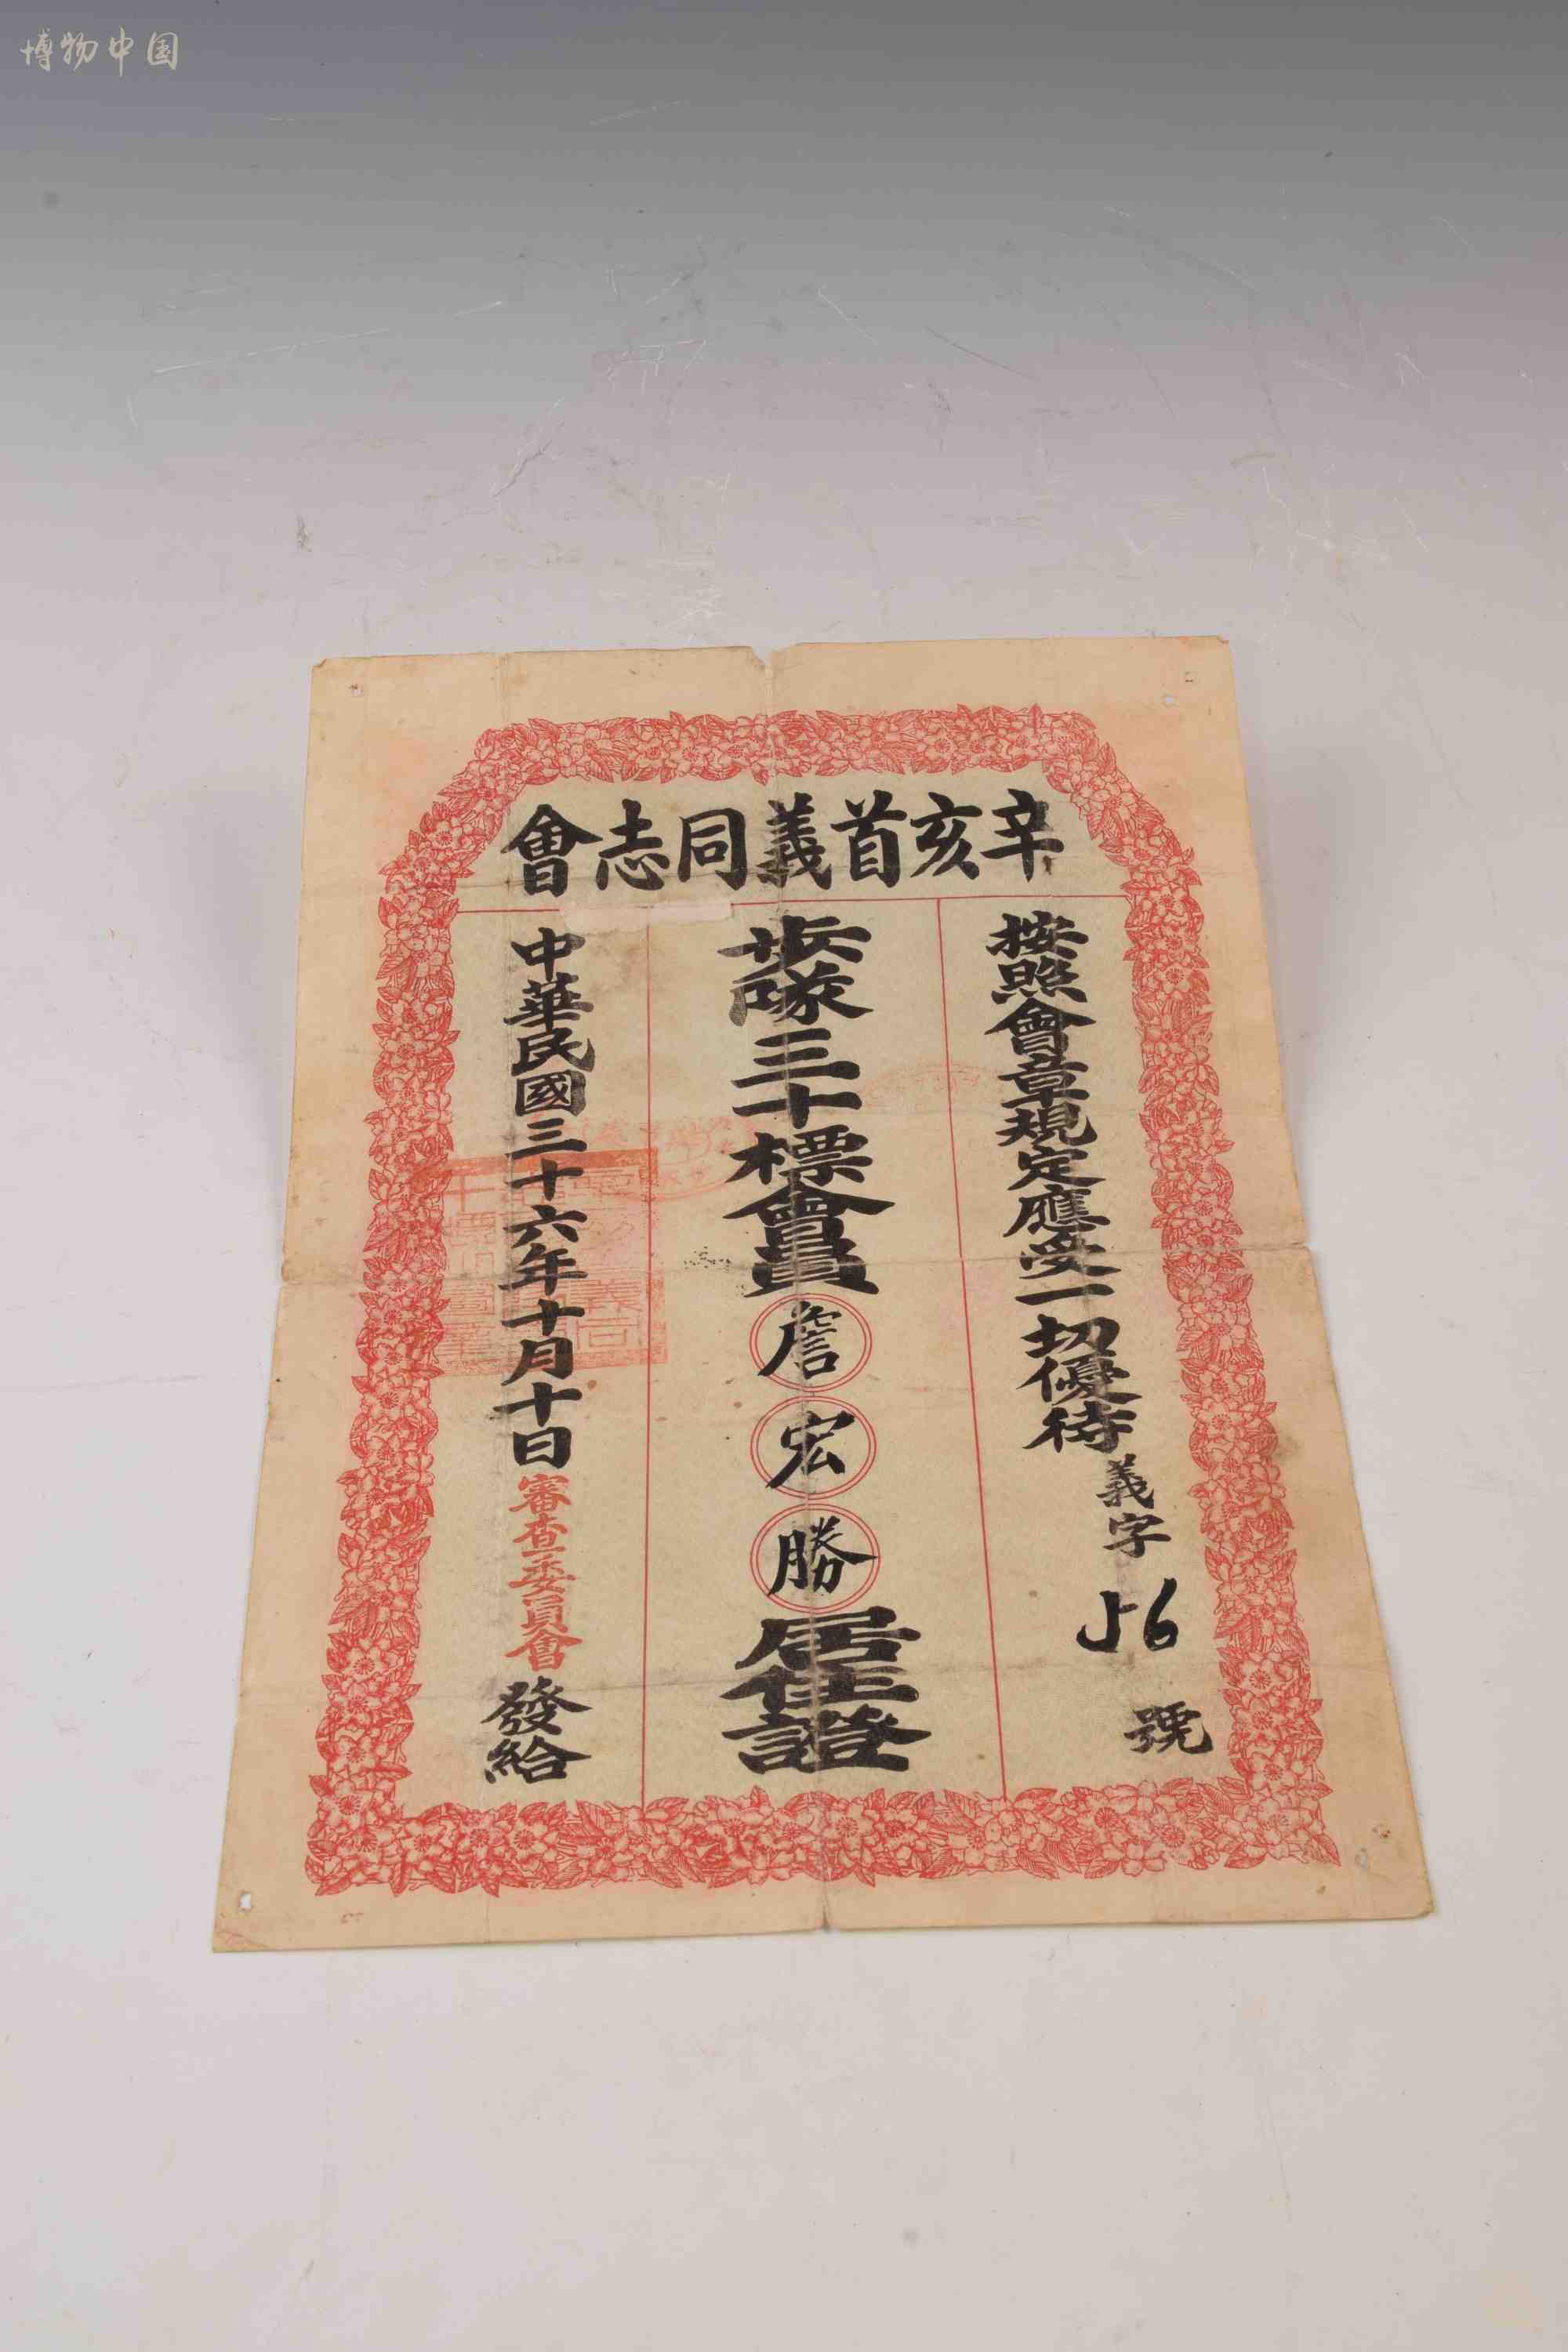 博物中国
辛亥首義同志會
按照會章規定應受一切優待
義字56號
步隊三十標會員詹宏勝居住證
中華民國三十六年十月十日審查委員會發給